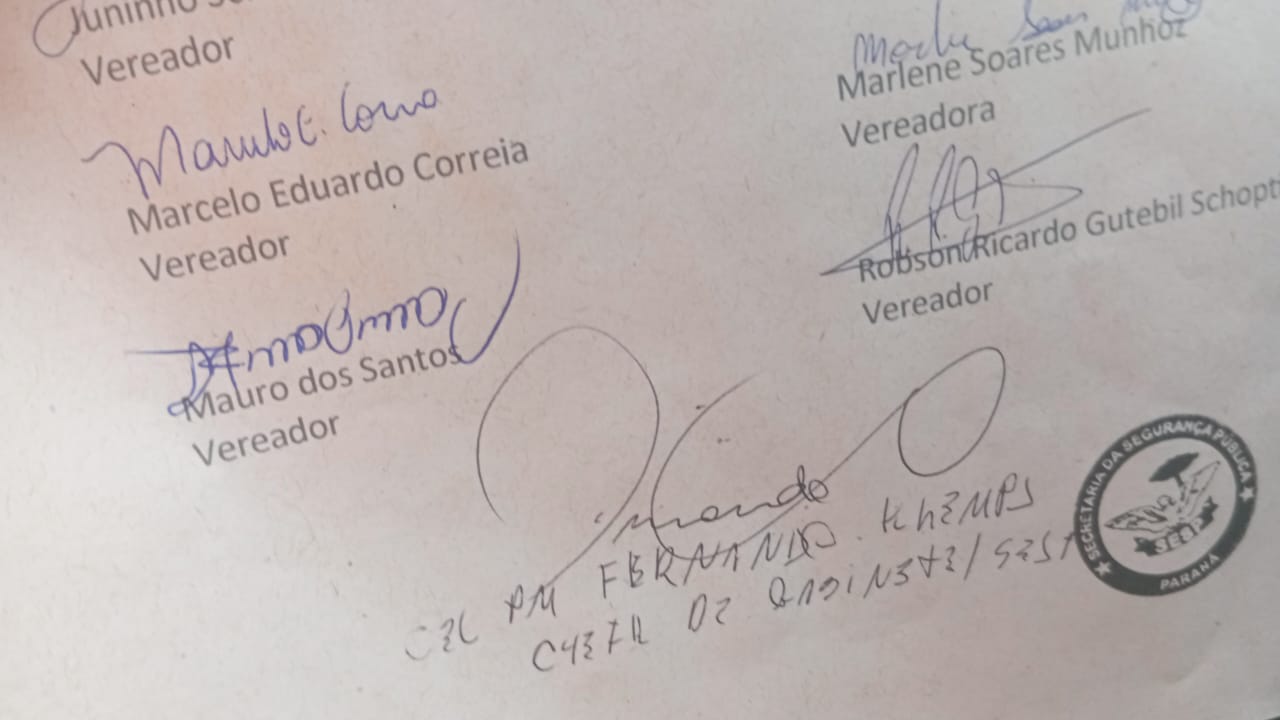 Juninho
Vereador
Marcelo E. Correia
Marcelo Eduardo Correia
Vereador
Mauro dos Santos
Vereador
Marlene Soares Munhoz
Vereadora
Robson Ricardo Gutebil Schopt
Vereador
Fernando
CEL PM FERNANDO KLEMPS
CHEFE DE GABINETE/SESP
SECRETARIA DA SEGURANÇA PÚBLICA
SESP
PARANÁ